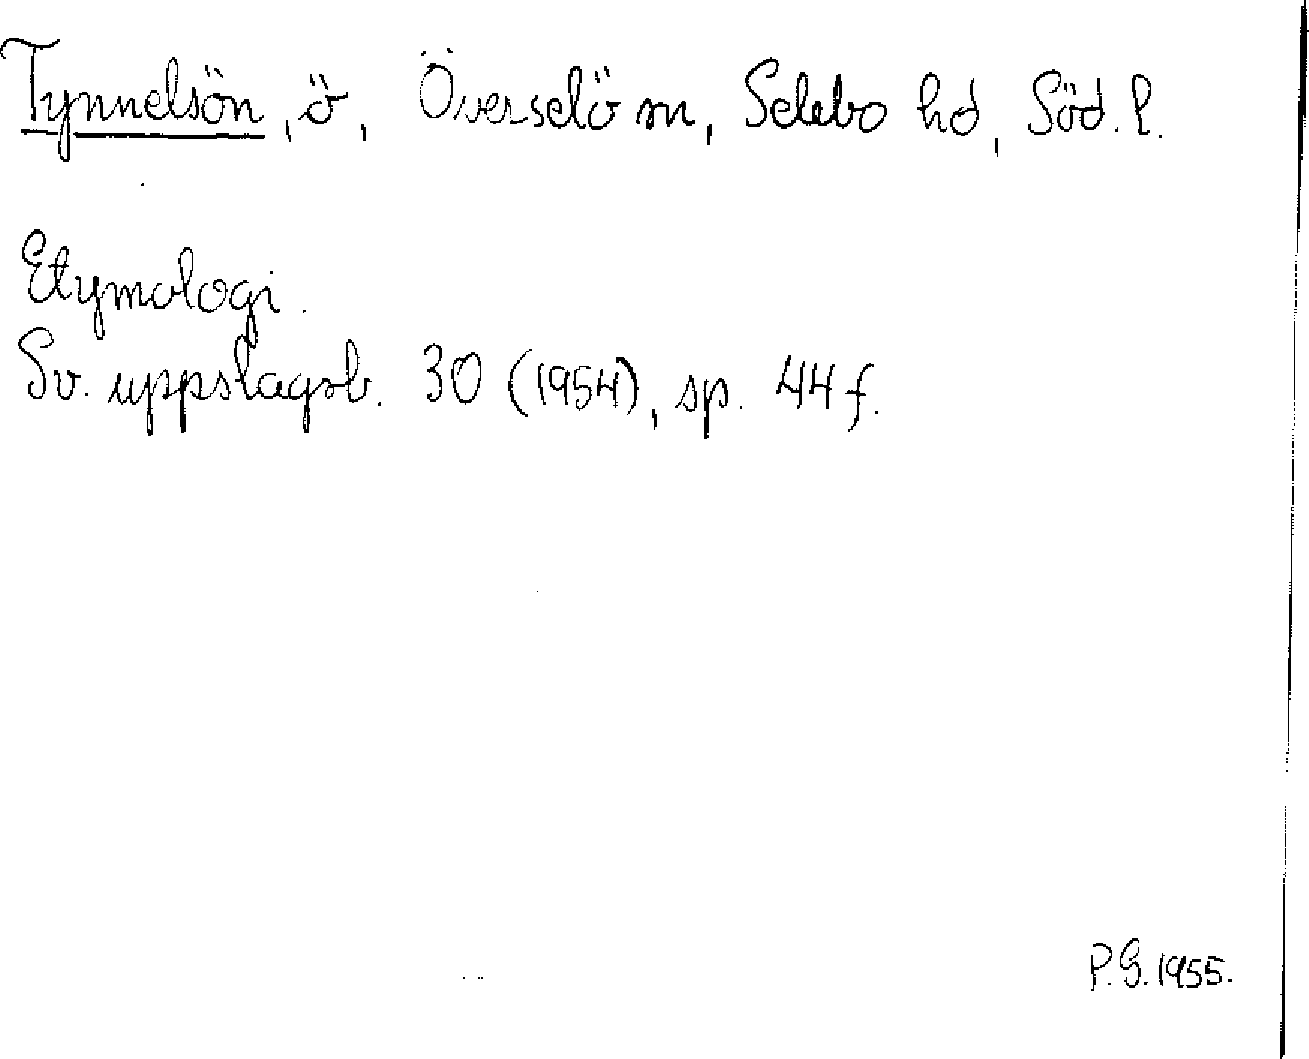 Tynnelsön, ö, Överselö sn, Selebo hd, Söd. l.
Etymologi.
Sv. uppslagsb. 30 (1954), sp. 44 f.
P.G. 1955.